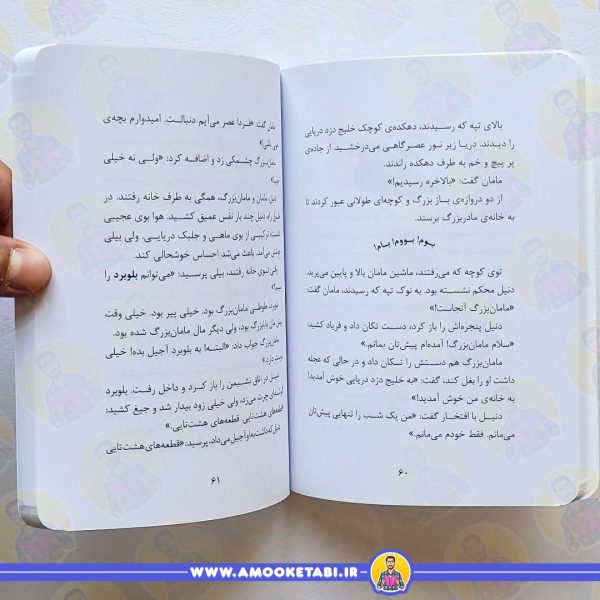 بالای تپه که رسیدند، دهکده‌ی کوچک خلیج دزد دریایی
را دیدند. دریا زیر نور عصرگاهی می‌درخشید. از جاده‌ی
پر پیچ و خم به طرف دهکده راندند.
مامان گفت: «بالاخره رسیدیم!»
از دو دروازه‌ی باز بزرگ و کوچه‌ای طولانی عبور کردند تا
به خانه‌ی مادربزرگ برسند.
بوم! بووم! بام!
توی کوچه که می‌رفتند، ماشین مامان بالا و پایین می‌پرید.
دنیل محکم نشسته بود. به نوک تپه که رسیدند، مامان گفت:
«مامان‌بزرگ آنجاست!»
دنیل پنجره‌اش را باز کرد، دست تکان داد و فریاد کشید:
«سلام مامان‌بزرگ! آمده‌ام پیش‌تان بمانم.»
مامان‌بزرگ هم دستش را تکان داد و در حالی که عجله
داشت او را بغل کند، گفت: «به خلیج دزد دریایی خوش آمدید!
به خانه‌ی من خوش آمدید!»
دنیل با افتخار گفت: «من یک شب را تنهایی پیش‌تان
می‌مانم. فقط خودم می‌مانم.»
۶۰
مامان گفت: «فردا عصر می‌آیم دنبالت. امیدوارم بچه‌ی
باشی!»
مامان‌بزرگ چشمکی زد و اضافه کرد: «ولی نه خیلی
دنیل، مامان و مامان‌بزرگ، همگی به طرف خانه رفتند. در
راه، دنیل چند بار نفس عمیق کشید. هوا بوی عجیبی
ترکیبی از بوی ماهی و جلبک دریایی. ولی بیلی
باعث می‌شد احساس خوشحالی کند.
توی خانه رفتند، بیلی پرسید: «می‌توانم بلوبرد را
طوطی مامان‌بزرگ بود. خیلی پیر بود. خیلی وقت
مال بابابزرگ بود، ولی دیگر مال مامان‌بزرگ شده بود.
مامان‌بزرگ جواب داد: «البته! به بلوبرد آجیل بده! خیلی
دارد.»
دنیل در اتاق نشیمن را باز کرد و داخل رفت. بلوبرد
چرت می‌زد، ولی خیلی زود بیدار شد و جیغ کشید:
«قطعه‌های هشت‌تایی. قطعه‌های هشت‌تایی.»
که داشت به او آجیل می‌داد، پرسید: «قطعه‌های هشت‌تایی
۶۱
WWW.AMOOKETABI.IR